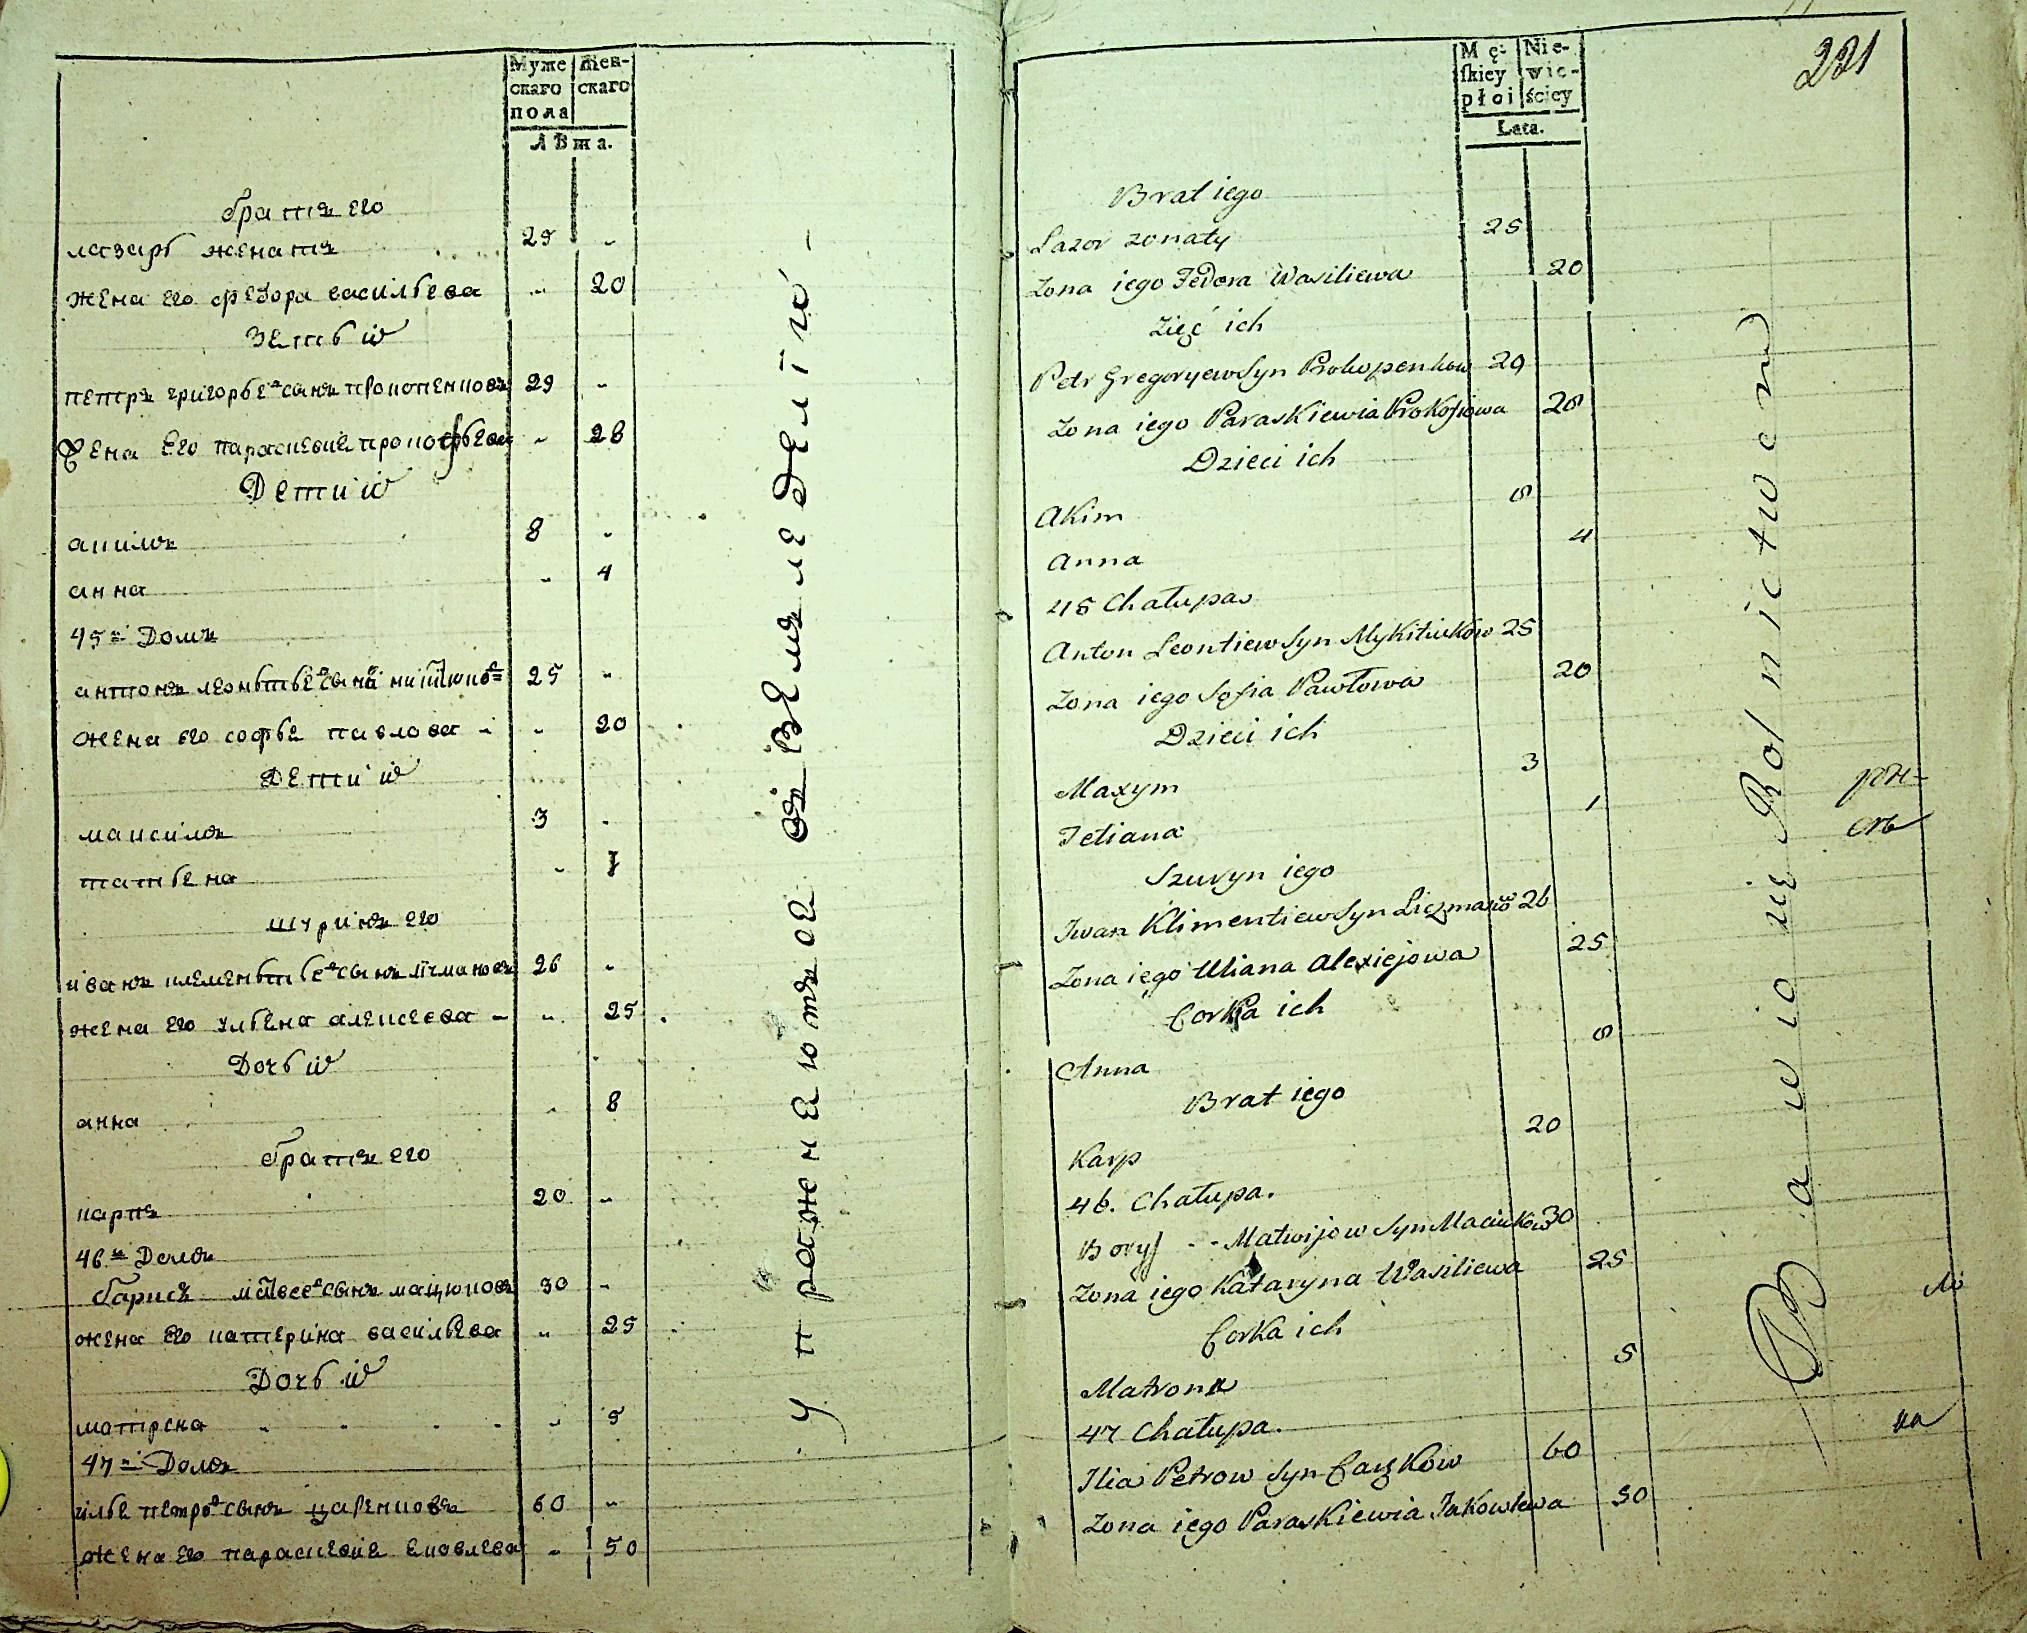 Муже Жен-
скаго скаго
пола
Лѣта.
братъ его
лазаръ женатъ 25 "
жена его федора васильева " 20
зеть их
петръ григорьев сынъ прокопенковъ 29 "
жена его параскевие прокофьева " 28
Дети их
акимъ 8 "
анна " 4
45й Домъ
антонъ леоньтьев сынъ никитюковъ 25 "
жена его софье павлова " 20
Дети их
максимъ 3 "
татьена " 1
шуринъ его
иванъ клеменьтьев сынъ личмановъ 26 "
жена его ульена алексеева " 25
Дочь их
анна " 8
братъ его
карпъ 20 "
46й Домъ
барисъ матвеев сынъ мацюковъ 30 "
жена его катерина васильева " 25
Дочь их
мотрена " 5
47й Домъ
илье петров сынъ царенковъ 60 "
жена его параскевие ековлева " 50
упражнеются въ земледелiю
221
Mę- Nie-
skiey wie-
płci ściey
Lata.
Brat iego
Lazor zonaty 25
Zona iego Fedora Wasiliewa 20
Zięć ich
Petr Gregoryew Syn Prokopenkow 29
Zona iego Paraskiewia Prokofiowa 28
Dzieci ich
Akim 8
Anna 4
45 Chałupa
Anton Leontiew Syn Mykitiukow 25
Zona iego Sofia Pawłowa 20
Dzieci ich
Maxym 3
Tetiana 1
Szuryn iego
Iwan Klimentiew Syn Liczmanow 26
Zona iego Uliana Alexiejowa 25
Corka ich
Anna 8
Brat iego
Karp 20
46. Chałupa.
Borys -- Matwijow Syn Maciukow 30
Zona iego Kataryna Wasiliewa 25
Corka ich
Matrona 5
47 Chałupa.
Ilia Petrow Syn 60
Zona iego Paraskiewia Jakowlewa 50
Bawio się Rolnictwem